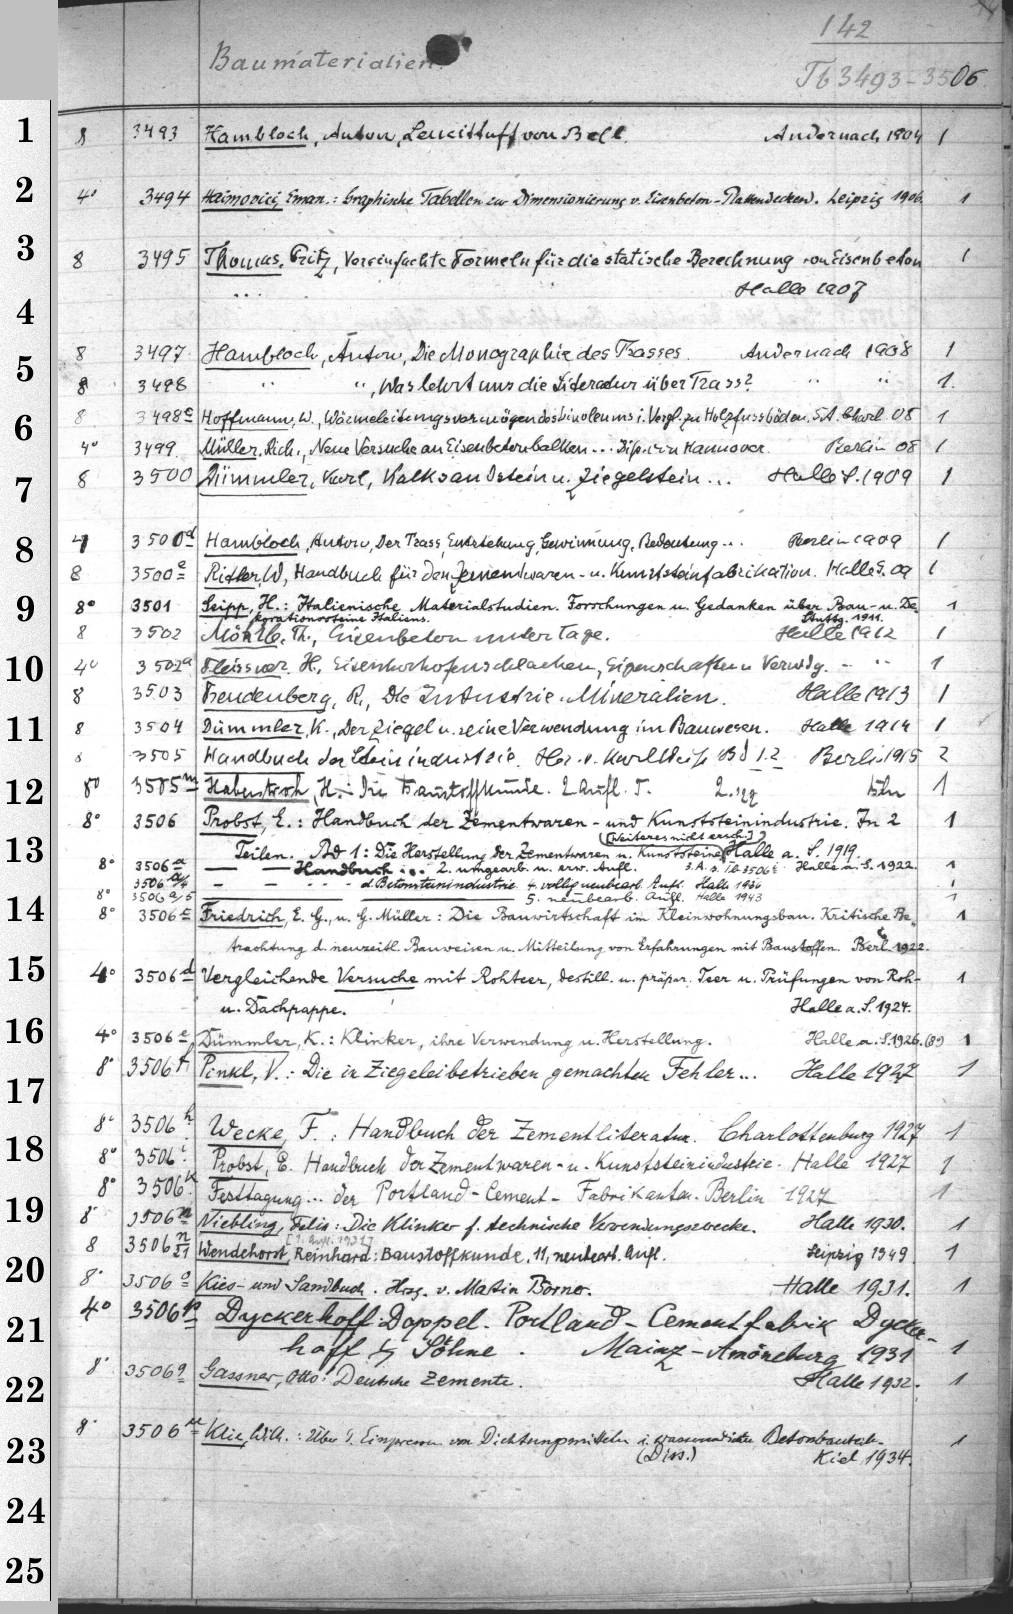 142
Baumaterialien.
Tb 3493-3506
1
8 3493 Hambloch, Anton, Leucittuff von Bell. Andernach 1904 1
2
4° 3494 Haimovici, Eman.: Graphische Tabellen zur Dimensionierung v. Eisenbeton-Plattendecken. Leipzig 1906. 1
3
8 3495 Thomas, Fritz, Vereinfachte Formeln für die statische Berechnung von Eisenbeton 1
Halle 1907
4
8 3497 Hambloch, Anton, Die Monographie des Trasses. Andernach 1908 1
5
8 3498 " ", Was lehrt uns die Literatur über Trass? " " 1.
8 3498c Hoffmann, W., Wärmeleitungsvermögen des Linoleums i. Vergl. zu Holzfussböden. S.A. Charl. 08 1
6
4° 3499 Müller, Rich., Neue Versuche an Eisenbetonbalken... Hannover. Berlin 08 1
8 3500 Dümmler, Karl, Kalksandstein u. Ziegelstein... Halle S. 1909 1
7
3500d Hambloch, Anton, Der Trass, Entstehung, Gewinnung, Bedeutung... Berlin 1909 1
8
8 3500e Ritter, W, Handbuch für den Zementwaren- u. Kunststeinfabrikation. Halle S. 09 1
9
8° 3501 Seipp, H.: Italienische Materialstudien. Forschungen u. Gedanken über Bau- u. De- 1
korationssteine Italiens. Stuttg. 1911.
8 3502 Möhrle, Th., Eisenbeton unter Tage. Halle 1912 1
10
4° 3502a Fleissner, H., Eisenhochofenschlacken, Eigenschaften u Verwdg. - " 1
8 3503 Freudenberg, R., Die Industrie-Mineralien. Halle 1913 1
11
8 3504 Dümmler, K., Der Ziegel u. seine Verwendung im Bauwesen. Halle 1914 1
8 3505 Handbuch der Steinindustrie. Hg. v. Karl Weiß Bd 1.2 Berlin 1915 2
12
8° 3505m Haberstroh, H.: Die Baustoffkunde. 2 Aufl. Bln 1
8° 3506 Probst, E.: Handbuch der Zementwaren- und Kunststeinindustrie. In 2 1
(Weiteres nicht ersch.)
13
Teilen. Bd 1: Die Herstellung der Zementwaren u. Kunststeine. Halle a. S. 1919.
3.A. s. Tb 3506i
8° 3506a — — Handbuch ... 2. umgearb. u. erw. Aufl. Halle a. S. 1922. 1
3506a/4 — — d. Betonsteinindustrie 4. völlig neubearb. Aufl. Halle 1936 1
8° 3506a/5 5. neubearb. Aufl. Halle 1943 1
14
8° 3506c Friedrich, E. G., u. G. Müller: Die Bauwirtschaft im Kleinwohnungsbau. Kritische Be- 1
trachtung d. neuzeitl. Bauweisen u. Mitteilung von Erfahrungen mit Baustoffen. Berl. 1922.
15
4° 3506d Vergleichende Versuche mit Rohteer, destill. u. präpar. Teer u. Prüfungen von Roh- 1
u. Dachpappe. Halle a. S. 1924.
16
4° 3506e Dümmler, K.: Klinker, ihre Verwendung u. Herstellung. Halle a. S. 1926. (8°) 1
8° 3506f Pinkl, V.: Die in Ziegeleibetrieben gemachten Fehler... Halle 1927 1
17
8° 3506h Wecke, F.: Handbuch der Zementliteratur. Charlottenburg 1927 1
18
8° 3506i Probst, E. Handbuch der Zementwaren- u. Kunststeinindustrie. Halle 1927 1
8° 3506k Festtagung... der Portland-Cement-Fabrikanten. Berlin 1927 1
19
8° 3506n Niebling, Felix: Die Klinker f. technische Verwendungszwecke. Halle 1930. 1
8 3506n/21 Wendehorst, Reinhard: Baustoffkunde. 11, neubearb. Aufl. Leipzig 1949. 1
20
8° 3506o Kies- und Sandbuch. Hrsg. v. Martin Börner. Halle 1931. 1
4° 3506p Dyckerhoff-Doppel. Portland-Cementfabrik Dycker-
21
hoff & Söhne. Mainz-Amöneburg 1931 1
8° 3506q Gassner, Otto: Deutsche Zemente. Halle 1932. 1
22
8° 3506u Klie, Wilh.: Über d. Einpressen von Dichtungsmitteln i. Betonbauteile.- 1
23
(Diss.) Kiel 1934.
24
25